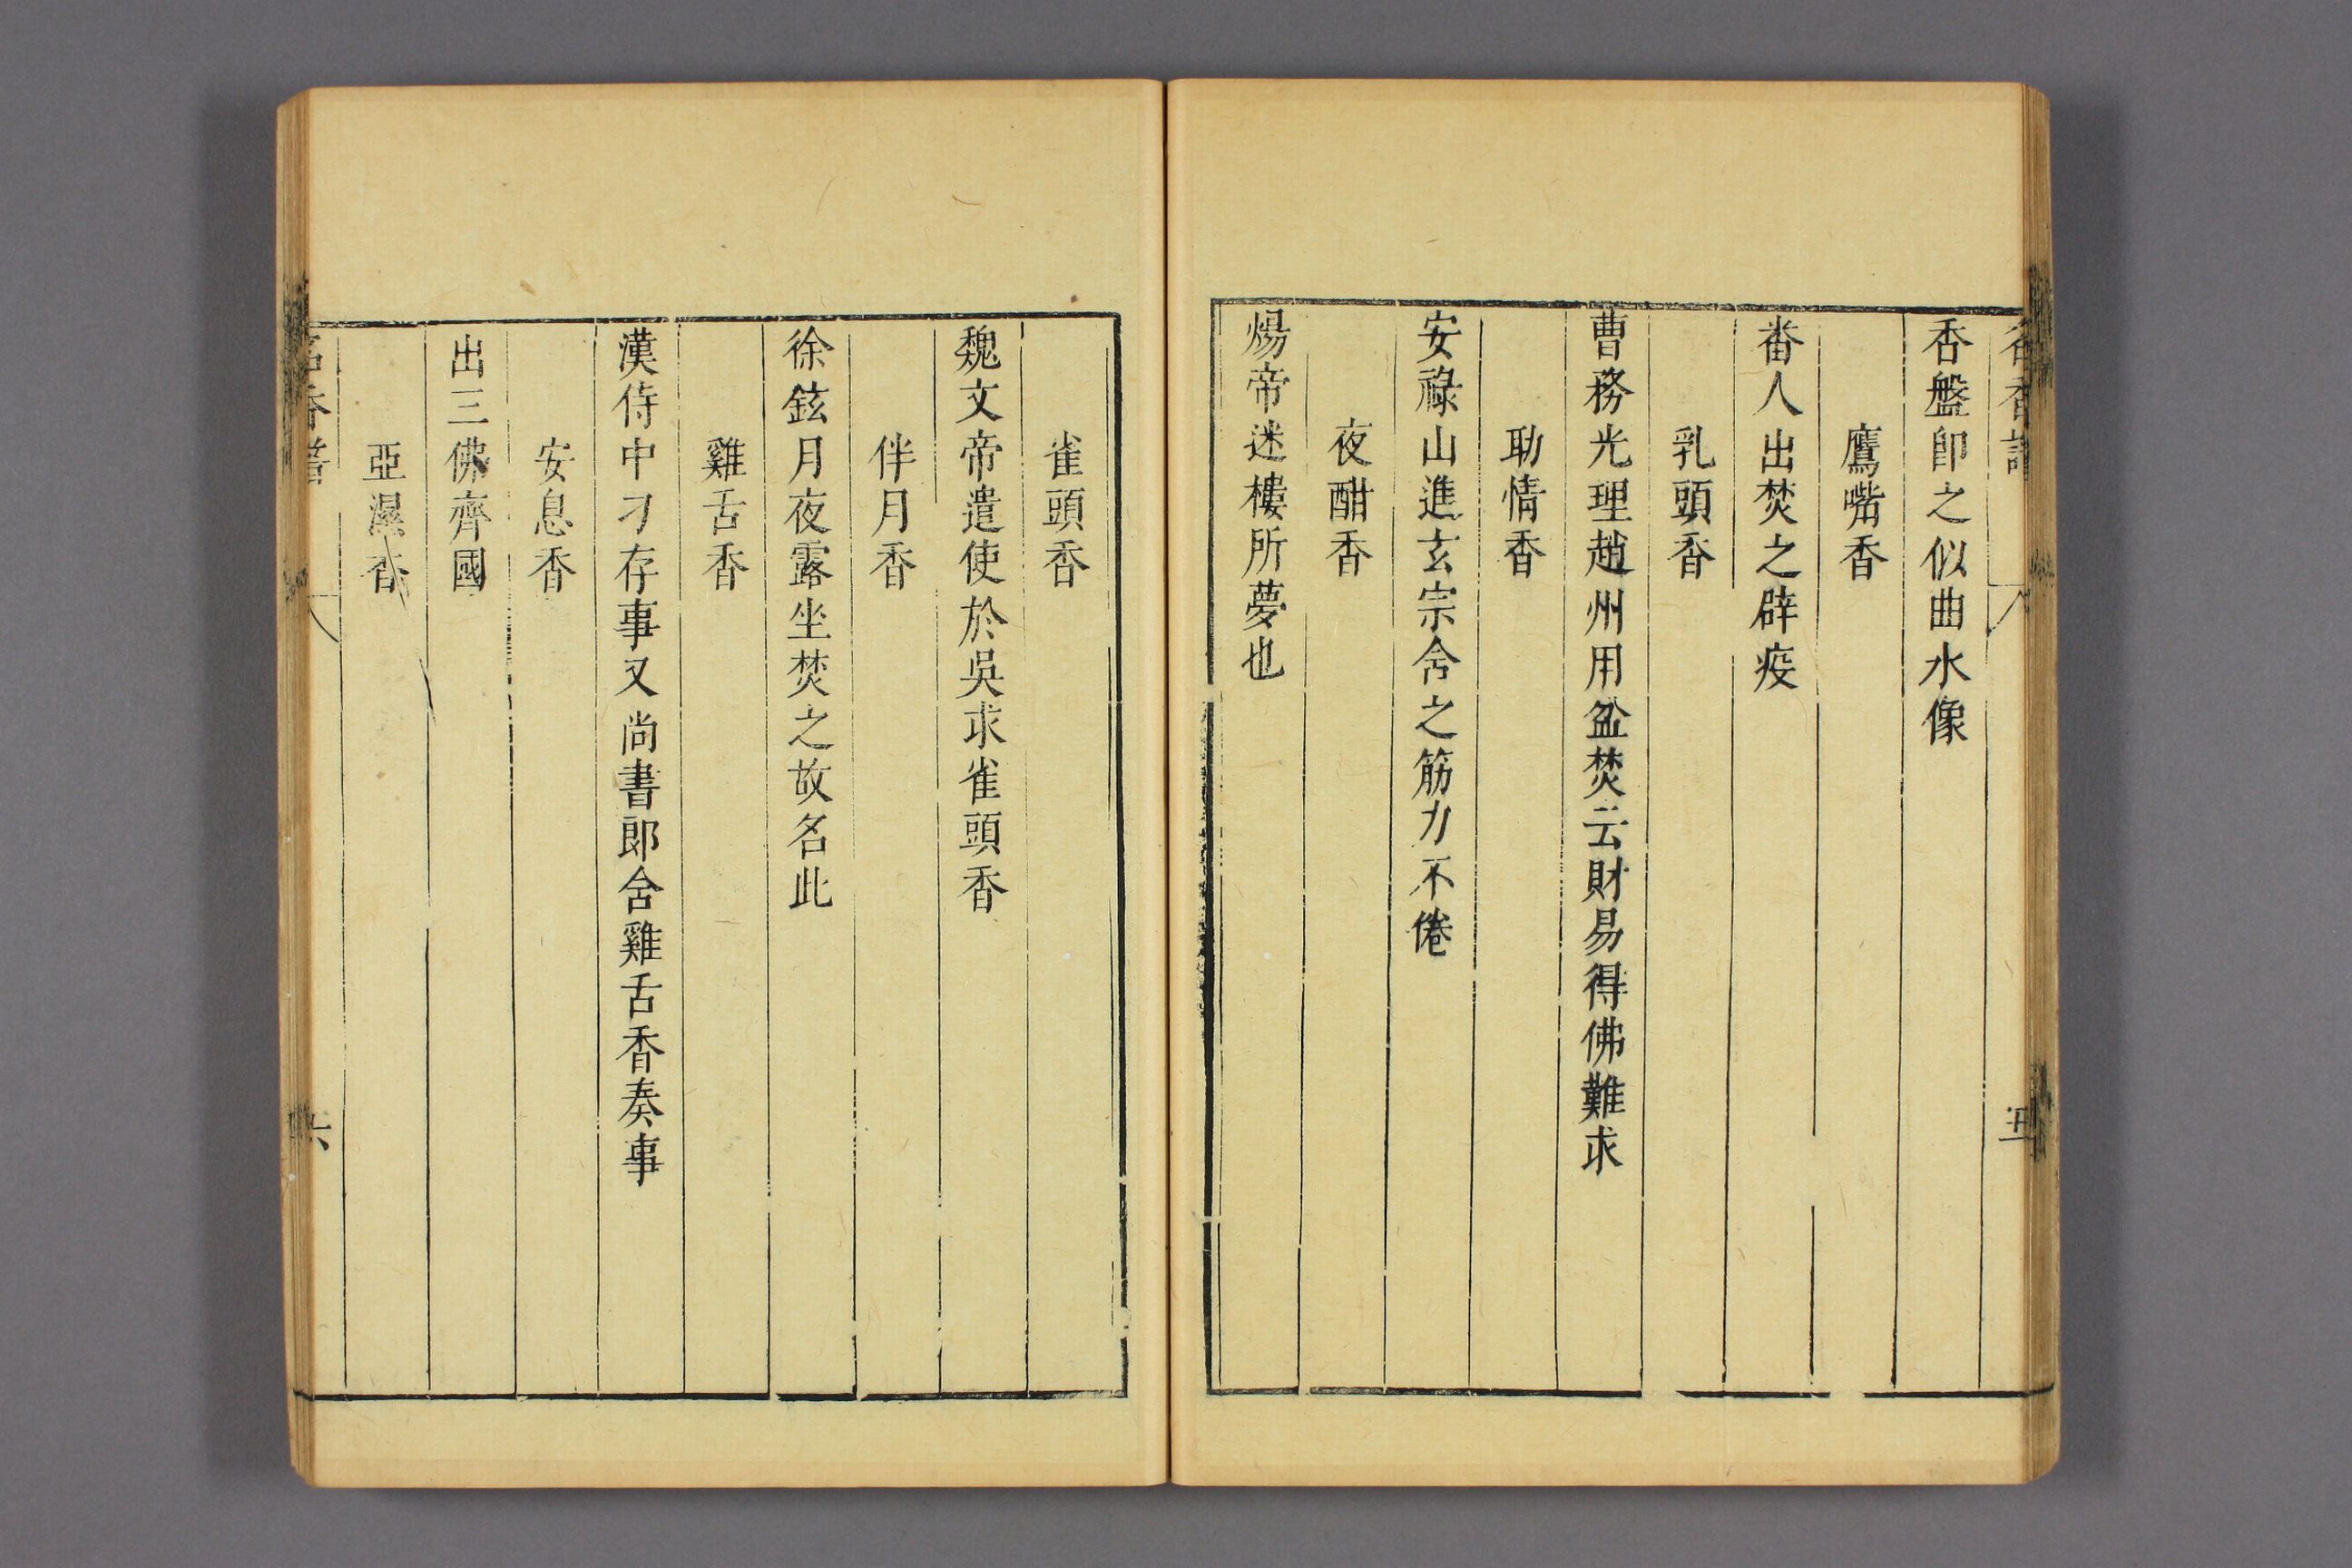 名香譜
五
香盤卽之似曲水像
鷹嘴香
番人出焚之辟疫
乳頭香
曹務光理趙州用盆焚云財易得佛難求
助情香
安祿山進玄宗含之筋力不倦
夜酣香
煬帝迷樓所夢也
雀頭香
魏文帝遣使於吳求雀頭香
伴月香
徐鉉月夜露坐焚之故名此
雞舌香
漢侍中刁存事又尚書郎含雞舌香奏事
安息香
出三佛齊國
亞濕香
名香譜
六